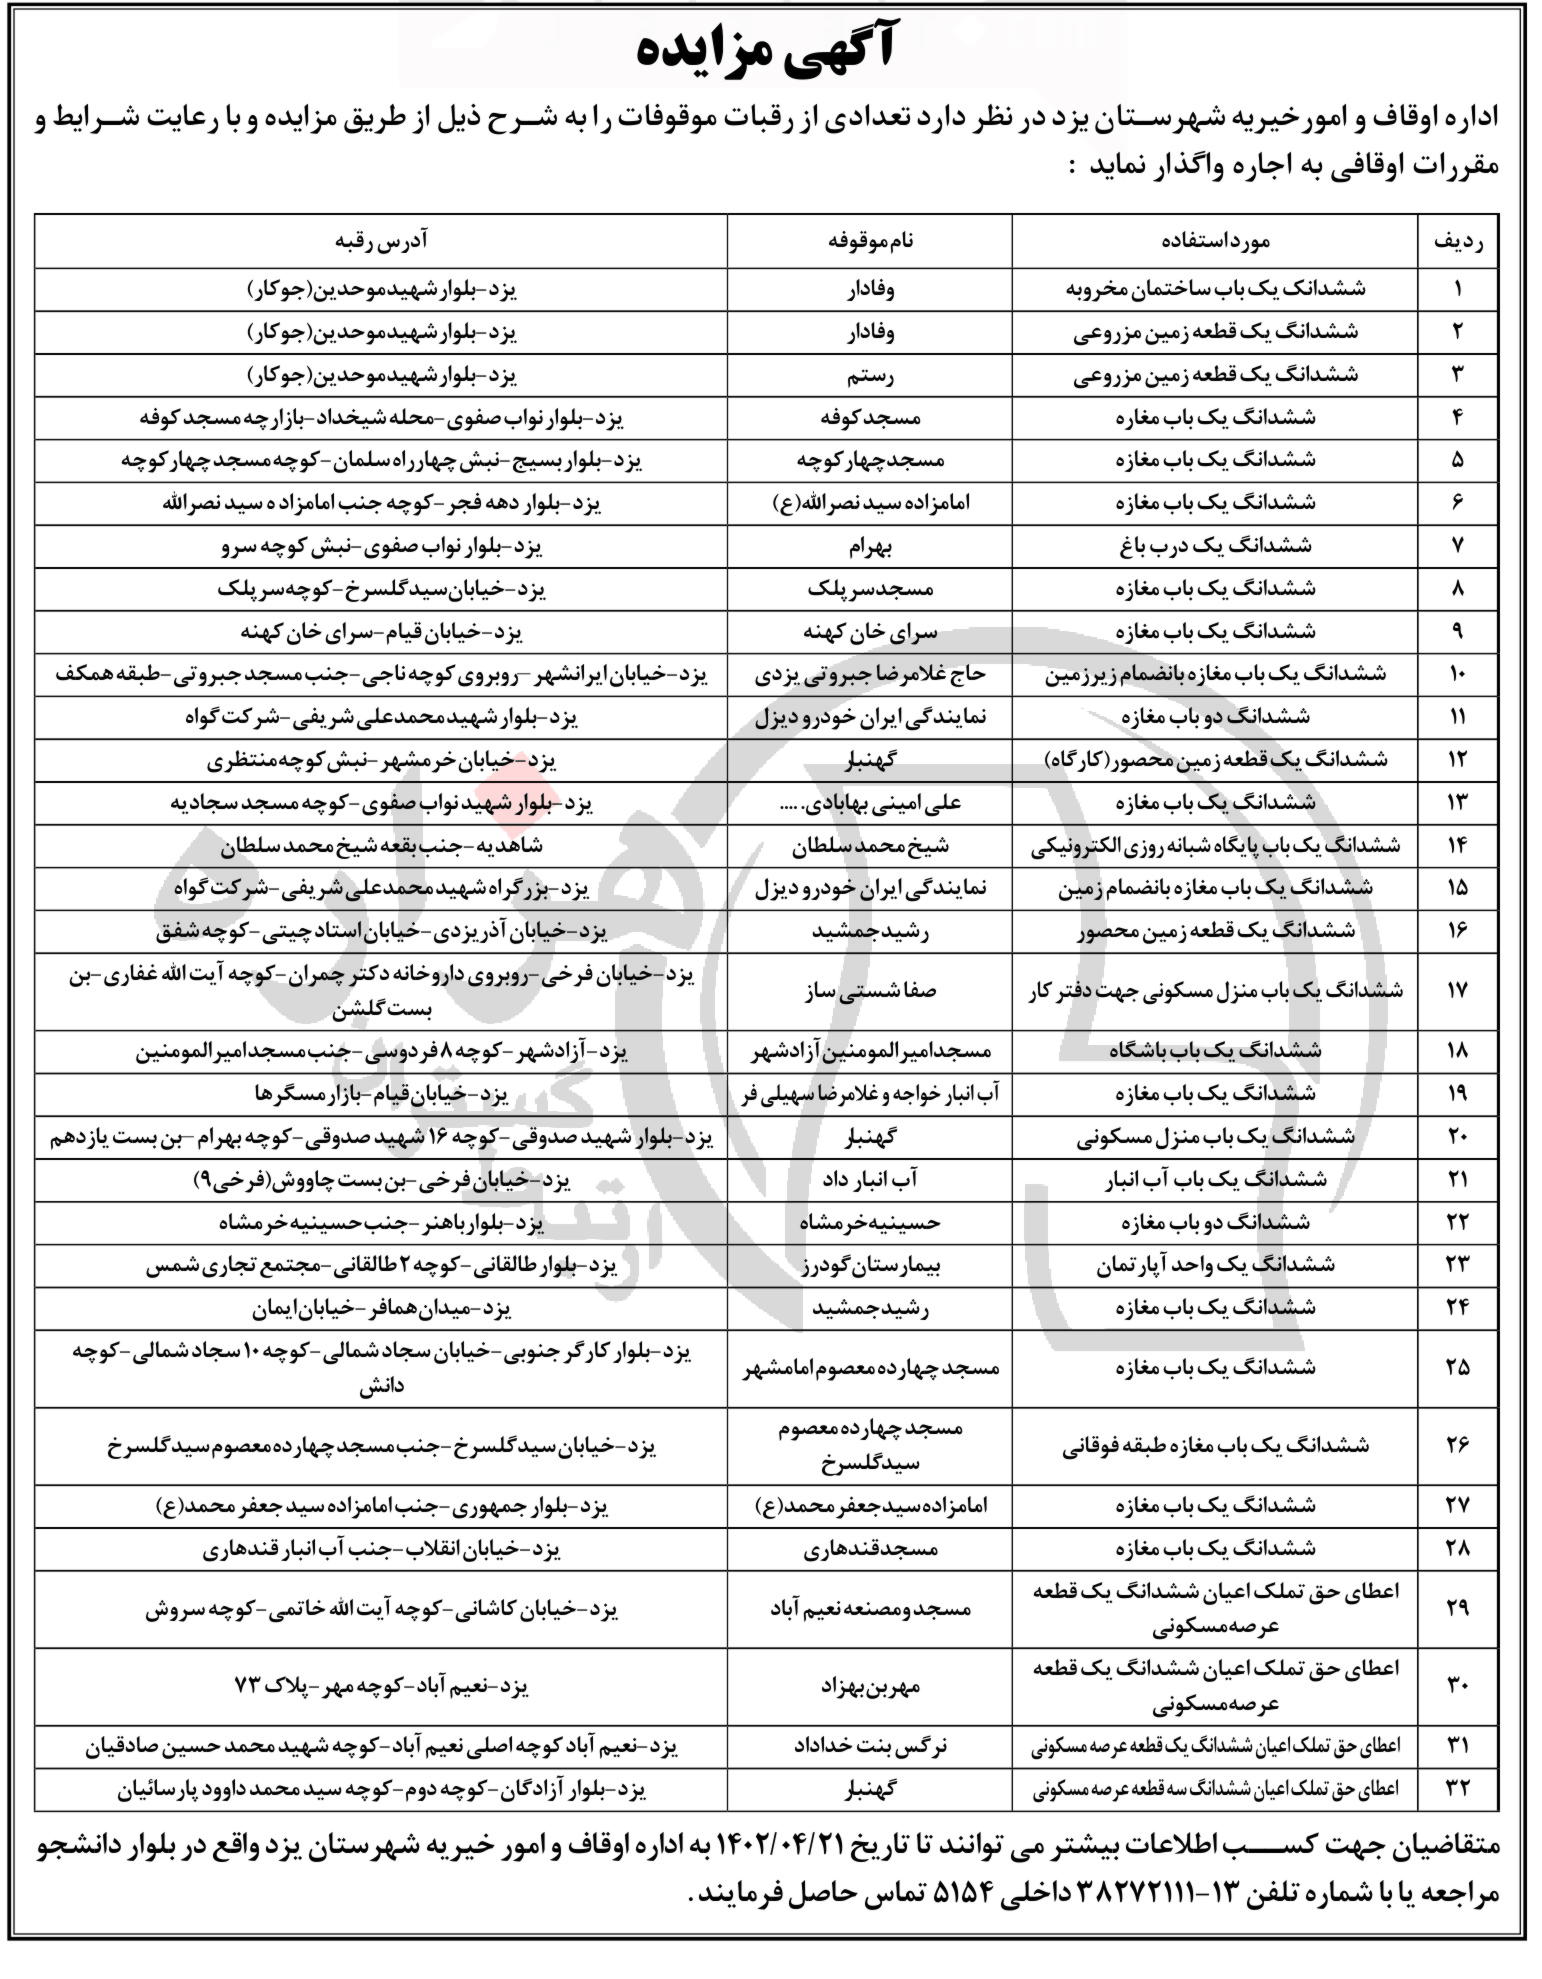 آگهی مزایده
اداره اوقاف و امورخیریه شهرستان یزد در نظر دارد تعدادی از رقبات موقوفات را به شرح ذیل از طریق مزایده و با رعایت شرایط و
مقررات اوقافی به اجاره واگذار نماید :
ردیف مورداستفاده نام موقوفه آدرس رقبه
۱ ششدانک یک باب ساختمان مخروبه وفادار یزد-بلوارشهیدموحدین(جوکار)
۲ ششدانگ یک قطعه زمین مزروعی وفادار یزد-بلوارشهیدموحدین(جوکار)
۳ ششدانگ یک قطعه زمین مزروعی رستم یزد-بلوارشهیدموحدین(جوکار)
۴ ششدانگ یک باب مغاره مسجدکوفه یزد-بلوارنواب صفوی-محله شیخداد-بازارچه مسجدکوفه
۵ ششدانگ یک باب مغازه مسجدچهارکوچه یزد-بلواربسیج-نبش چهارراه سلمان-کوچه مسجدچهارکوچه
۶ ششدانگ یک باب مغازه امامزاده سید نصرالله(ع) یزد-بلوار دهه فجر-کوچه جنب امامزاد ه سید نصرالله
۷ ششدانگ یک درب باغ بهرام یزد-بلوار نواب صفوی-نبش کوچه سرو
۸ ششدانگ یک باب مغازه مسجدسرپلک یزد-خیابان سیدگلسرخ-کوچه سرپلک
۹ ششدانگ یک باب مغازه سرای خان کهنه یزد-خیابان قیام-سرای خان کهنه
۱۰ ششدانگ یک باب مغازه بانضمام زیرزمین حاج غلامرضا جبروتی یزدی یزد-خیابان ایرانشهر-روبروی کوچه ناجی-جنب مسجد جبروتی-طبقه همکف
۱۱ ششدانگ دو باب مغازه نمایندگی ایران خودرو دیزل یزد-بلوارشهیدمحمدعلی شریفی-شرکت گواه
۱۲ ششدانگ یک قطعه زمین محصور(کارگاه) گهنبار یزد-خیابان خرمشهر-نبش کوچه منتظری
۱۳ ششدانگ یک باب مغازه علی امینی بهابادی..... یزد-بلوار شهید نواب صفوی-کوچه مسجد سجادیه
۱۴ ششدانگ یک باب پایگاه شبانه روزی الکترونیکی شیخ محمد سلطان شاهدیه-جنب بقعه شیخ محمد سلطان
۱۵ ششدانگ یک باب مغازه بانضمام زمین نمایندگی ایران خودرو دیزل یزد-بزرگراه شهیدمحمدعلی شریفی-شرکت گواه
۱۶ ششدانگ یک قطعه زمین محصور رشیدجمشید یزد-خیابان آذریزدی-خیابان استاد چیتی-کوچه شفق
۱۷ ششدانگ یک باب منزل مسکونی جهت دفتر کار صفا شستی ساز یزد-خیابان فرخی-روبروی داروخانه دکتر چمران-کوچه آیت الله غفاری-بن
بست گلشن
۱۸ ششدانگ یک باب باشگاه مسجدامیرالمومنین آزادشهر یزد-آزادشهر-کوچه ۸فردوسی-جنب مسجدامیرالمومنین
۱۹ ششدانگ یک باب مغازه آب انبار خواجه و غلامرضا سهیلی فر یزد-خیابان قیام-بازار مسگرها
۲۰ ششدانگ یک باب منزل مسکونی گهنبار یزد-بلوار شهید صدوقی-کوچه ۱۶ شهید صدوقی-کوچه بهرام-بن بست یازدهم
۲۱ ششدانگ یک باب آب انبار آب انبار داد یزد-خیابان فرخی-بن بست چاووش(فرخی۹)
۲۲ ششدانگ دو باب مغازه حسینیه خرمشاه یزد-بلوارباهنر-جنب حسینیه خرمشاه
۲۳ ششدانگ یک واحد آپارتمان بیمارستان گودرز یزد-بلوارطالقانی-کوچه ۲طالقانی-مجتمع تجاری شمس
۲۴ ششدانگ یک باب مغازه رشیدجمشید یزد-میدان همافر-خیابان ایمان
۲۵ ششدانگ یک باب مغازه مسجد چهارده معصوم امامشهر یزد-بلوار کارگر جنوبی-خیابان سجاد شمالی-کوچه ۱۰ سجاد شمالی-کوچه
دانش
۲۶ ششدانگ یک باب مغازه طبقه فوقانی مسجد چهارده معصوم
سیدگلسرخ یزد-خیابان سیدگلسرخ-جنب مسجد چهارده معصوم سیدگلسرخ
۲۷ ششدانگ یک باب مغازه امامزاده سید جعفر محمد(ع) یزد-بلوار جمهوری-جنب امامزاده سید جعفر محمد(ع)
۲۸ ششدانگ یک باب مغازه مسجدقندهاری یزد-خیابان انقلاب-جنب آب انبار قندهاری
۲۹ اعطای حق تملک اعیان ششدانگ یک قطعه
عرصه مسکونی مسجد ومصنعه نعیم آباد یزد-خیابان کاشانی-کوچه آیت الله خاتمی-کوچه سروش
۳۰ اعطای حق تملک اعیان ششدانگ یک قطعه
عرصه مسکونی مهربن بهزاد یزد-نعیم آباد-کوچه مهر-پلاک ۷۳
۳۱ اعطای حق تملک اعیان ششدانگ یک قطعه عرصه مسکونی نرگس بنت خداداد یزد-نعیم آباد کوچه اصلی نعیم آباد-کوچه شهید محمد حسین صادقیان
۳۲ اعطای حق تملک اعیان ششدانگ سه قطعه عرصه مسکونی گهنبار یزد-بلوار آزادگان-کوچه دوم-کوچه سید محمد داوود پارسائیان
متقاضیان جهت کسب اطلاعات بیشتر می توانند تا تاریخ ۱۴۰۲/۰۴/۲۱ به اداره اوقاف و امور خیریه شهرستان یزد واقع در بلوار دانشجو
مراجعه یا با شماره تلفن ۱۳-۳۸۲۷۲۱۱۱ داخلی ۵۱۵۴ تماس حاصل فرمایند.
هزاره
گستران
ارتباط